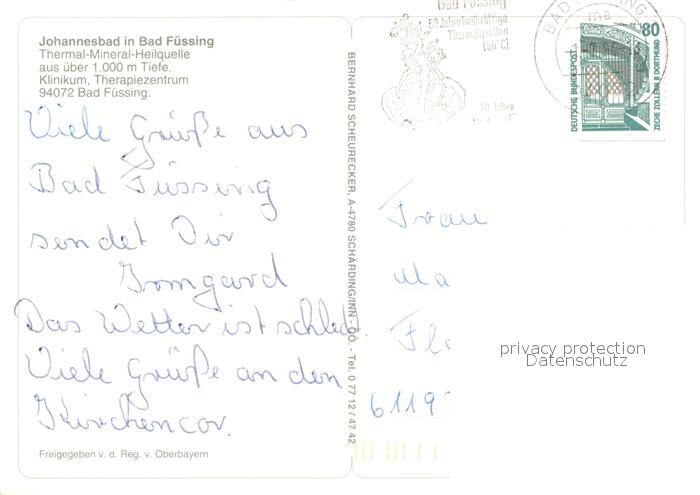 Johannesbad in Bad Füssing
Thermal-Mineral-Heilquelle
aus über 1.000 m Tiefe.
Klinikum, Therapiezentrum
94072 Bad Füssing.
Viele Grüße aus
Bad Füssing
sendet Dir
Irmgard
Das Wetter ist schlecht.
Viele Grüße an den
Kirchencor.
Freigegeben v. d. Reg. v. Oberbayern
BERNHARD SCHEURECKER, A-4780 SCHÄRDING/INN - OÖ. - Tel. 0 77 12 / 47 42
Bad Füssing
50 Jahre heilkräftige
Thermalquellen
(56°C)
BAD
80
DEUTSCHE BUNDESPOST
ZECHE ZOLLERN II DORTMUND
Frau
Ma
Fl
6119
privacy protection
Datenschutz